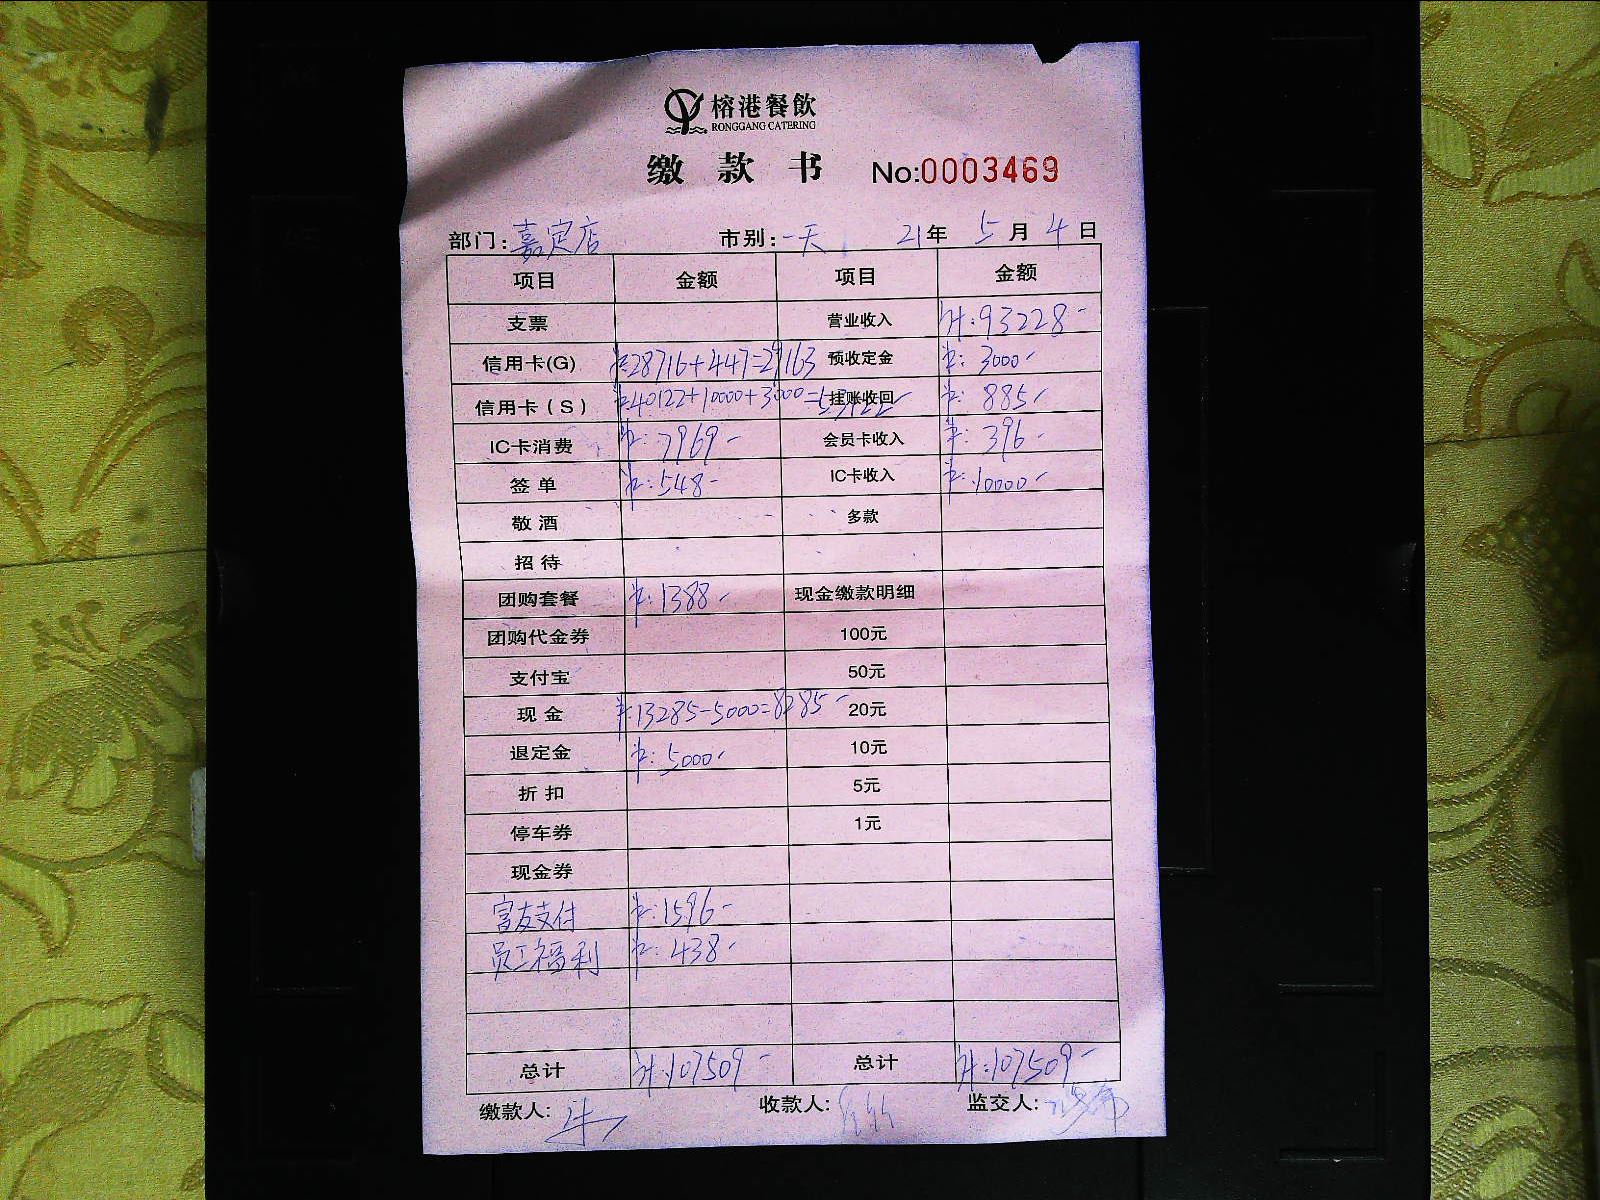 榕港餐飲
RONGGANG CATERING
缴款书 No:0003469
部门:嘉定店 市别:一天 21年5月4日
项目 金额 项目 金额
支票 营业收入 计:93228-
信用卡(G) 卡:28716+447=29163 预收定金 卡:3000-
信用卡(S) 卡:40122+10000+3000=53122 挂账收回 卡:885-
IC卡消费 卡:7969- 会员卡收入 卡:396-
签单 卡:548- IC卡收入 卡:10000-
敬酒 多款
招待
团购套餐 卡:1388- 现金缴款明细
团购代金券 100元
支付宝 50元
现金 卡:13285-5000=8285- 20元
退定金 卡:5000- 10元
折扣 5元
停车券 1元
现金券
富友支付 卡:1596-
员工福利 卡:438-
总计 计:107509- 总计 计:107509-
缴款人: 收款人: 监交人: